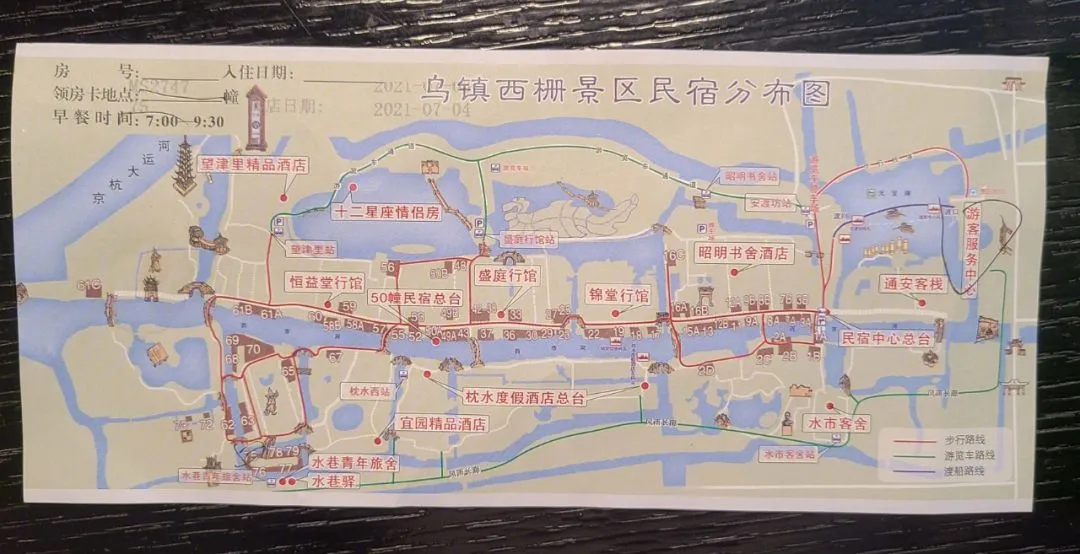 乌镇西栅景区民宿分布图
房 号: 入住日期:
领房卡地点: 幢
店日期: 2021-07-04
早餐时间: 7:00~9:30
京杭大运河
望津里精品酒店
十二星座情侣房
望津里站
盛庭行馆站
昭明书舍站
安渡坊站
游客服务中心
恒益堂行馆
50幢民宿总台
盛庭行馆
锦堂行馆
昭明书舍酒店
通安客栈
民宿中心总台
枕水西站
枕水度假酒店总台
宜园精品酒店
水市客舍
水市客舍站
水巷青年旅舍
水巷青年旅舍站
水巷驿
步行路线
游览车路线
渡船路线
61C
61B
61A
60
59
58B
58A
57
56
55
52
49A
43
37
36
33
30
22
19
16C
16A
67
69
68
70
65
62
63
72
76
77
78
79
2A
2B
1B